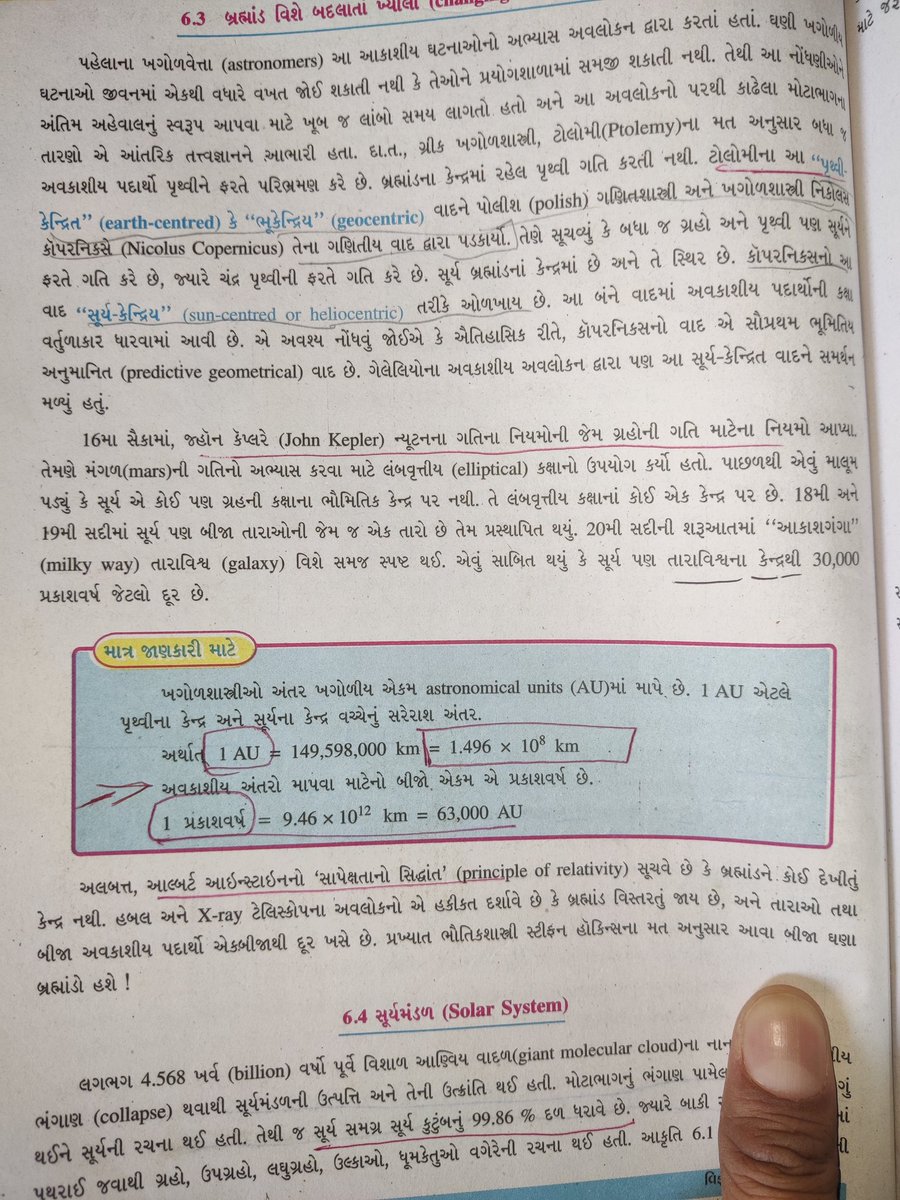 6.3 બ્રહ્માંડ વિશે બદલાતા ખ્યાલો
પહેલાના ખગોળવેત્તા (astronomers) આ આકાશીય ઘટનાઓનો અભ્યાસ અવલોકન દ્વારા કરતાં હતાં. ઘણી ખગોળીય
ઘટનાઓ જીવનમાં એકથી વધારે વખત જોઈ શકાતી નથી કે તેઓને પ્રયોગશાળામાં સમજી શકાતી નથી. તેથી આ નોંધણીઓને
અંતિમ અહેવાલનું સ્વરૂપ આપવા માટે ખૂબ જ લાંબો સમય લાગતો હતો અને આ અવલોકનો પરથી કાઢેલા મોટાભાગના
તારણો એ આંતરિક તત્ત્વજ્ઞાનને આભારી હતા. દા.ત., ગ્રીક ખગોળશાસ્ત્રી, ટોલોમી(Ptolemy)ના મત અનુસાર બધા જ
અવકાશીય પદાર્થો પૃથ્વીને ફરતે પરિભ્રમણ કરે છે. બ્રહ્માંડના કેન્દ્રમાં રહેલ પૃથ્વી ગતિ કરતી નથી. ટોલોમીના આ “પૃથ્વી-
કેન્દ્રિત” (earth-centred) કે “ભૂકેન્દ્રિય” (geocentric) વાદને પોલીશ (polish) ગણિતશાસ્ત્રી અને ખગોળશાસ્ત્રી નિકોલસ
કૉપરનિકસે (Nicolus Copernicus) તેના ગણિતીય વાદ દ્વારા પડકાર્યો. તેણે સૂચવ્યું કે બધા જ ગ્રહો અને પૃથ્વી પણ સૂર્યને
ફરતે ગતિ કરે છે, જ્યારે ચંદ્ર પૃથ્વીની ફરતે ગતિ કરે છે. સૂર્ય બ્રહ્માંડનાં કેન્દ્રમાં છે અને તે સ્થિર છે. કૉપરનિકસનો આ
વાદ “સૂર્ય-કેન્દ્રિય” (sun-centred or heliocentric) તરીકે ઓળખાય છે. આ બંને વાદમાં અવકાશીય પદાર્થોની કક્ષા
વર્તુળાકાર ધારવામાં આવી છે. એ અવશ્ય નોંધવું જોઈએ કે ઐતિહાસિક રીતે, કૉપરનિકસનો વાદ એ સૌપ્રથમ ભૂમિતિય
અનુમાનિત (predictive geometrical) વાદ છે. ગેલેલિયોના અવકાશીય અવલોકન દ્વારા પણ આ સૂર્ય-કેન્દ્રિત વાદને સમર્થન
મળ્યું હતું.
16મા સૈકામાં, જ્હૉન કૅપ્લરે (John Kepler) ન્યૂટનના ગતિના નિયમોની જેમ ગ્રહોની ગતિ માટેના નિયમો આપ્યા.
તેમણે મંગળ(mars)ની ગતિનો અભ્યાસ કરવા માટે લંબવૃત્તીય (elliptical) કક્ષાનો ઉપયોગ કર્યો હતો. પાછળથી એવું માલૂમ
પડ્યું કે સૂર્ય એ કોઈ પણ ગ્રહની કક્ષાના ભૌમિતિક કેન્દ્ર પર નથી. તે લંબવૃત્તીય કક્ષાનાં કોઈ એક કેન્દ્ર પર છે. 18મી અને
19મી સદીમાં સૂર્ય પણ બીજા તારાઓની જેમ જ એક તારો છે તેમ પ્રસ્થાપિત થયું. 20મી સદીની શરૂઆતમાં “આકાશગંગા”
(milky way) તારાવિશ્વ (galaxy) વિશે સમજ સ્પષ્ટ થઈ. એવું સાબિત થયું કે સૂર્ય પણ તારાવિશ્વના કેન્દ્રથી 30,000
પ્રકાશવર્ષ જેટલો દૂર છે.
માત્ર જાણકારી માટે
ખગોળશાસ્ત્રીઓ અંતર ખગોળીય એકમ astronomical units (AU)માં માપે છે. 1 AU એટલે
પૃથ્વીના કેન્દ્ર અને સૂર્યના કેન્દ્ર વચ્ચેનું સરેરાશ અંતર.
અર્થાત્ 1 AU = 149,598,000 km = 1.496 × 10⁸ km
અવકાશીય અંતરો માપવા માટેનો બીજો એકમ એ પ્રકાશવર્ષ છે.
1 પ્રકાશવર્ષ = 9.46 × 10¹² km = 63,000 AU
અલબત્ત, આલ્બર્ટ આઇન્સ્ટાઇનનો ‘સાપેક્ષતાનો સિદ્ધાંત’ (principle of relativity) સૂચવે છે કે બ્રહ્માંડને કોઈ દેખીતું
કેન્દ્ર નથી. હબલ અને X-ray ટેલિસ્કોપના અવલોકનો એ હકીકત દર્શાવે છે કે બ્રહ્માંડ વિસ્તરતું જાય છે, અને તારાઓ તથા
બીજા અવકાશીય પદાર્થો એકબીજાથી દૂર ખસે છે. પ્રખ્યાત ભૌતિકશાસ્ત્રી સ્ટીફન હૉકિન્સના મત અનુસાર આવા બીજા ઘણા
બ્રહ્માંડો હશે !
6.4 સૂર્યમંડળ (Solar System)
લગભગ 4.568 ખર્વ (billion) વર્ષો પૂર્વે વિશાળ આણ્વિય વાદળ(giant molecular cloud)ના
ભંગાણ (collapse) થવાથી સૂર્યમંડળની ઉત્પત્તિ અને તેની ઉત્ક્રાંતિ થઈ હતી. મોટાભાગનું ભંગાણ પામેલ
થઈને સૂર્યની રચના થઈ હતી. તેથી જ સૂર્ય સમગ્ર સૂર્ય કુટુંબનું 99.86 % દળ ધરાવે છે. જ્યારે બાકી
પથરાઈ જવાથી ગ્રહો, ઉપગ્રહો, લઘુગ્રહો, ઉલ્કાઓ, ધૂમકેતુઓ વગેરેની રચના થઈ હતી. આકૃતિ 6.1